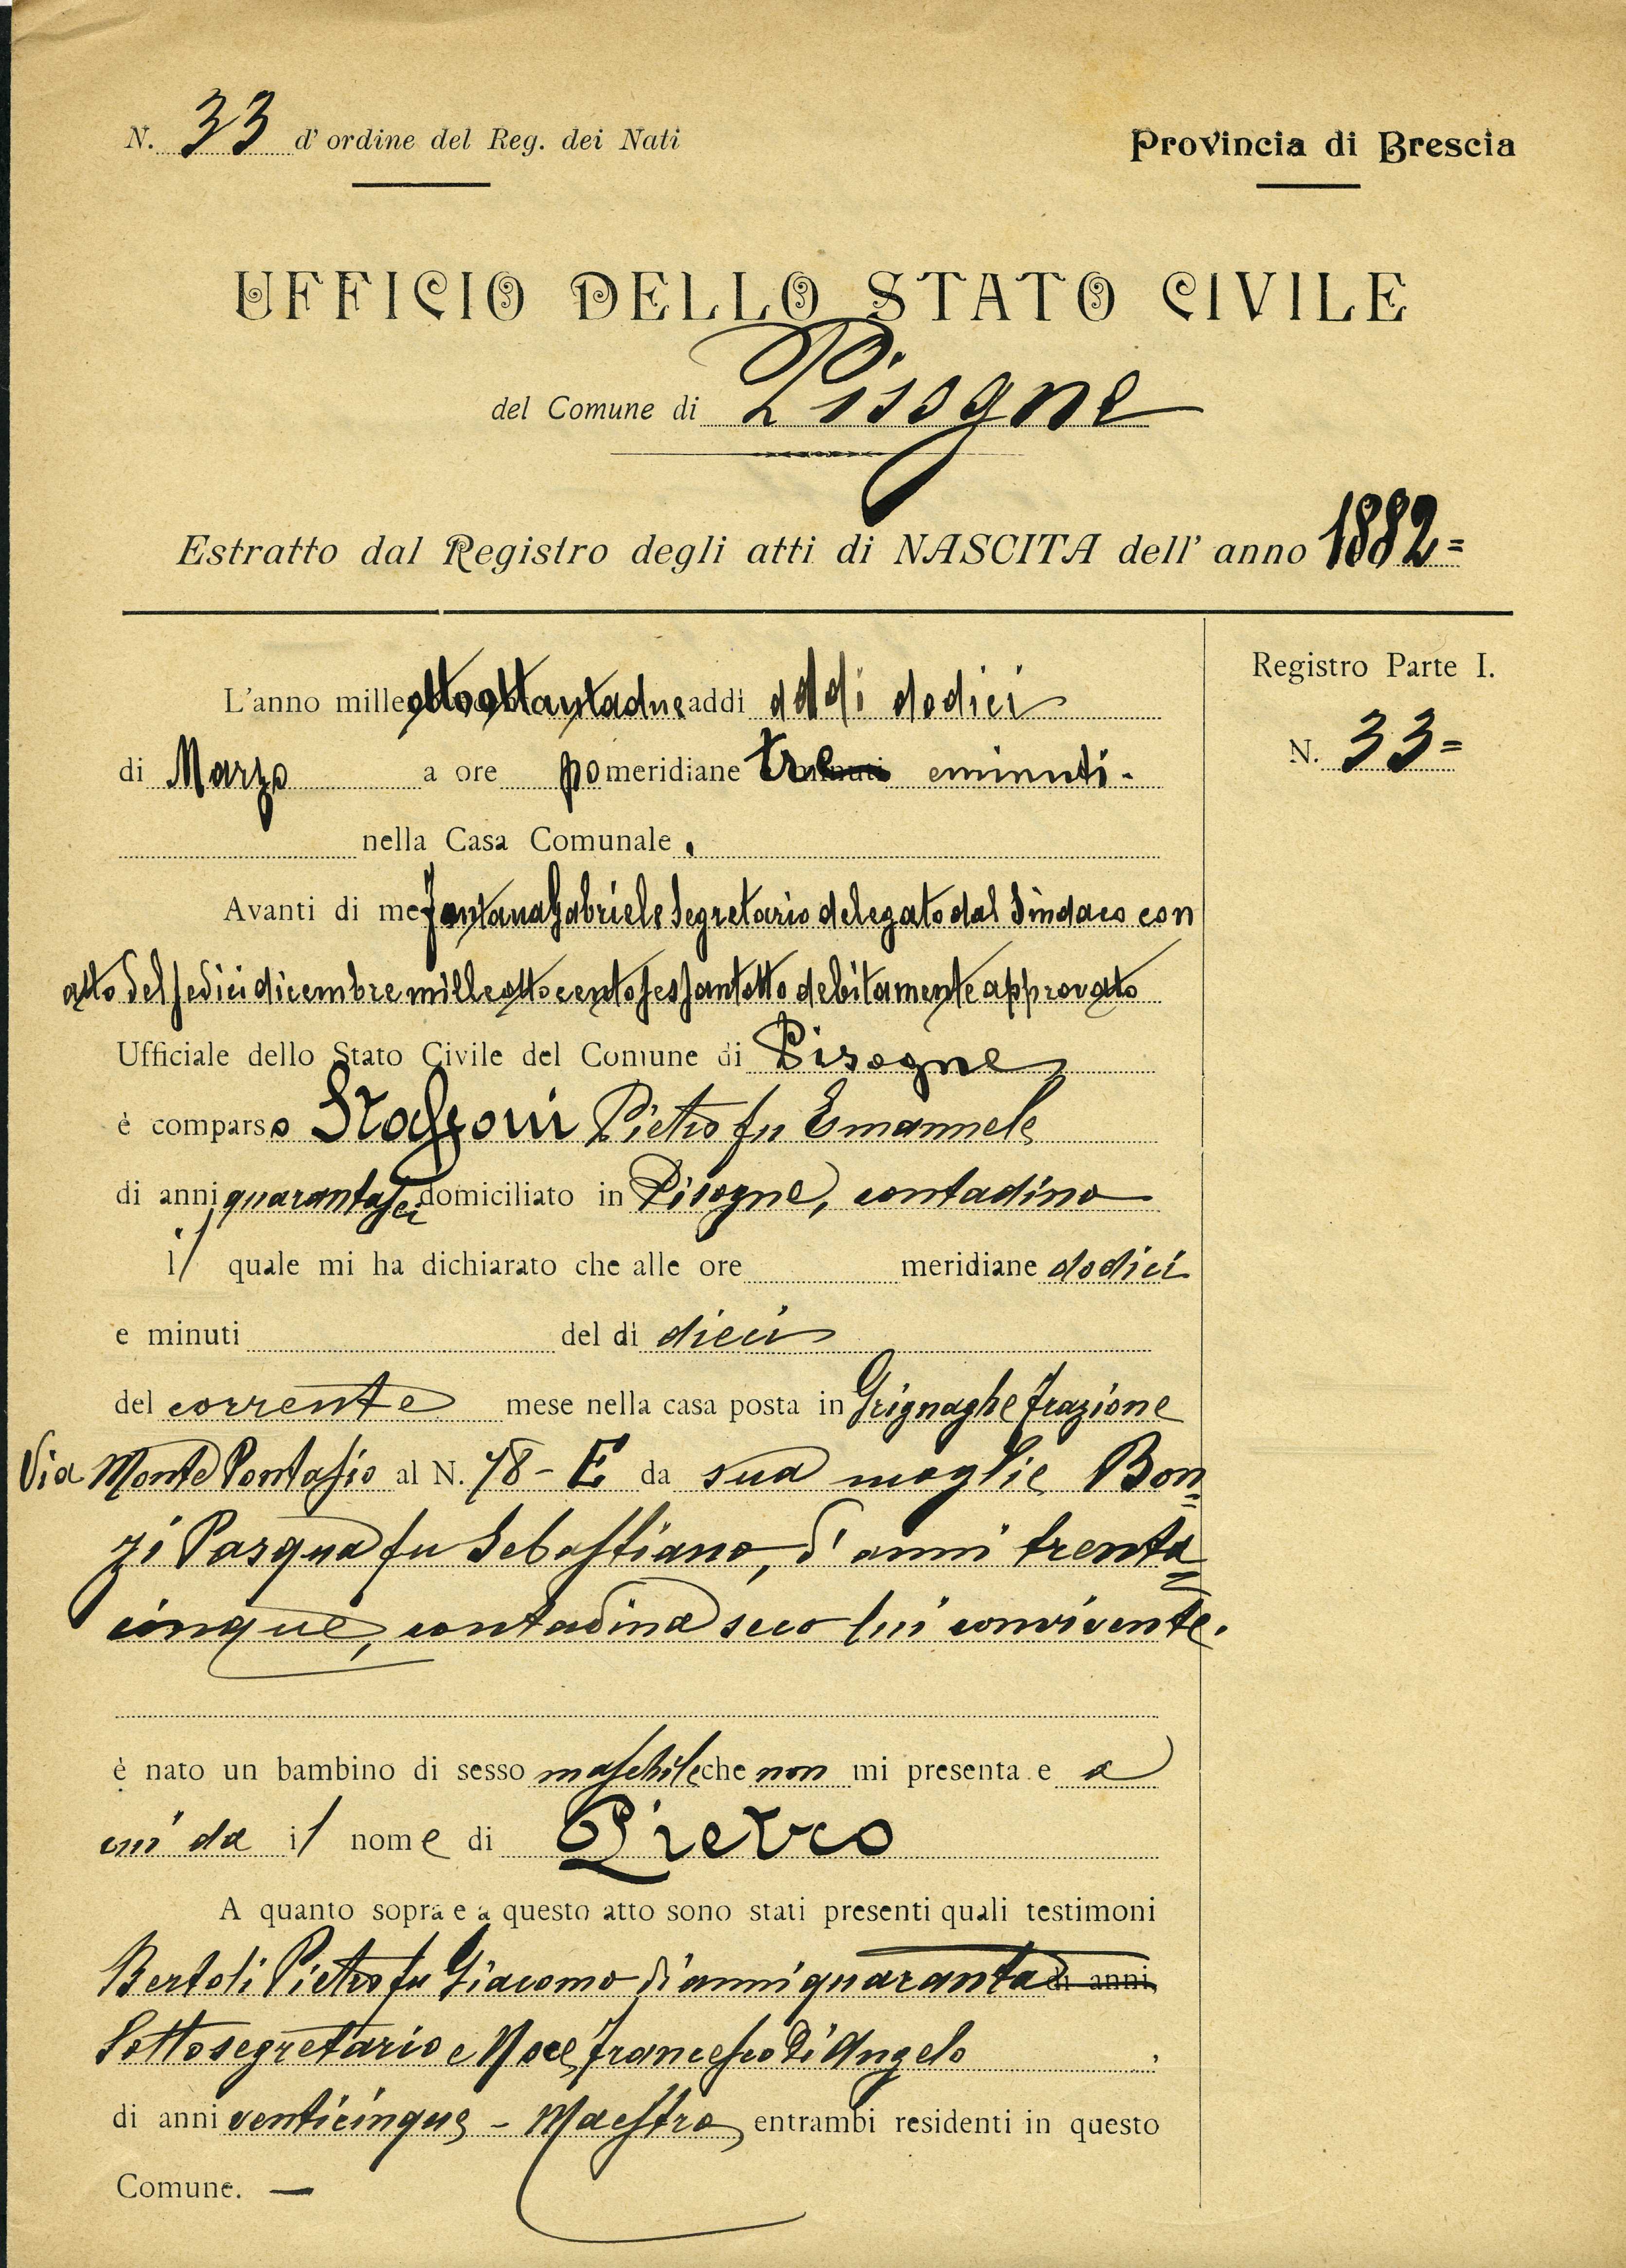 N. 33 d' ordine del Reg. dei Nati
Provincia di Brescia
UFFICIO DELLO STATO CIVILE
del Comune di Pisogne
Estratto dal Registro degli atti di NASCITA dell' anno 1882=
Registro Parte I.
N. 33=
L'anno mille ottoottantadue addì addì dodici
di Marzo a ore pomeridiane tre eminuti -
nella Casa Comunale.
Avanti di me Fontana Gabriele Segretario delegato dal Sindaco con
atto del sedici dicembre milleottocentosessantotto debitamente approvato
Ufficiale dello Stato Civile del Comune di Pisogne
è comparso Pietro fu Emanuele
di anni quarantasei domiciliato in Pisogne, contadino
il quale mi ha dichiarato che alle ore meridiane dodici
e minuti del dì dieci
del corrente mese nella casa posta in Grignaghe frazione
Via Monte Pontasio al N. 78 - E da sua moglie Bon=
zi Pasqua fu Sebastiano, d'anni trenta=
cinque, contadina seco lui convivente.
è nato un bambino di sesso maschile che non mi presenta e a
cui da il nome di Pietro
A quanto sopra e a questo atto sono stati presenti quali testimoni
Bertoli Pietro fu Giacomo di anni quaranta di anni,
Sottosegretario e Francesco di Angelo
di anni venticinque - Maestro, entrambi residenti in questo
Comune. —